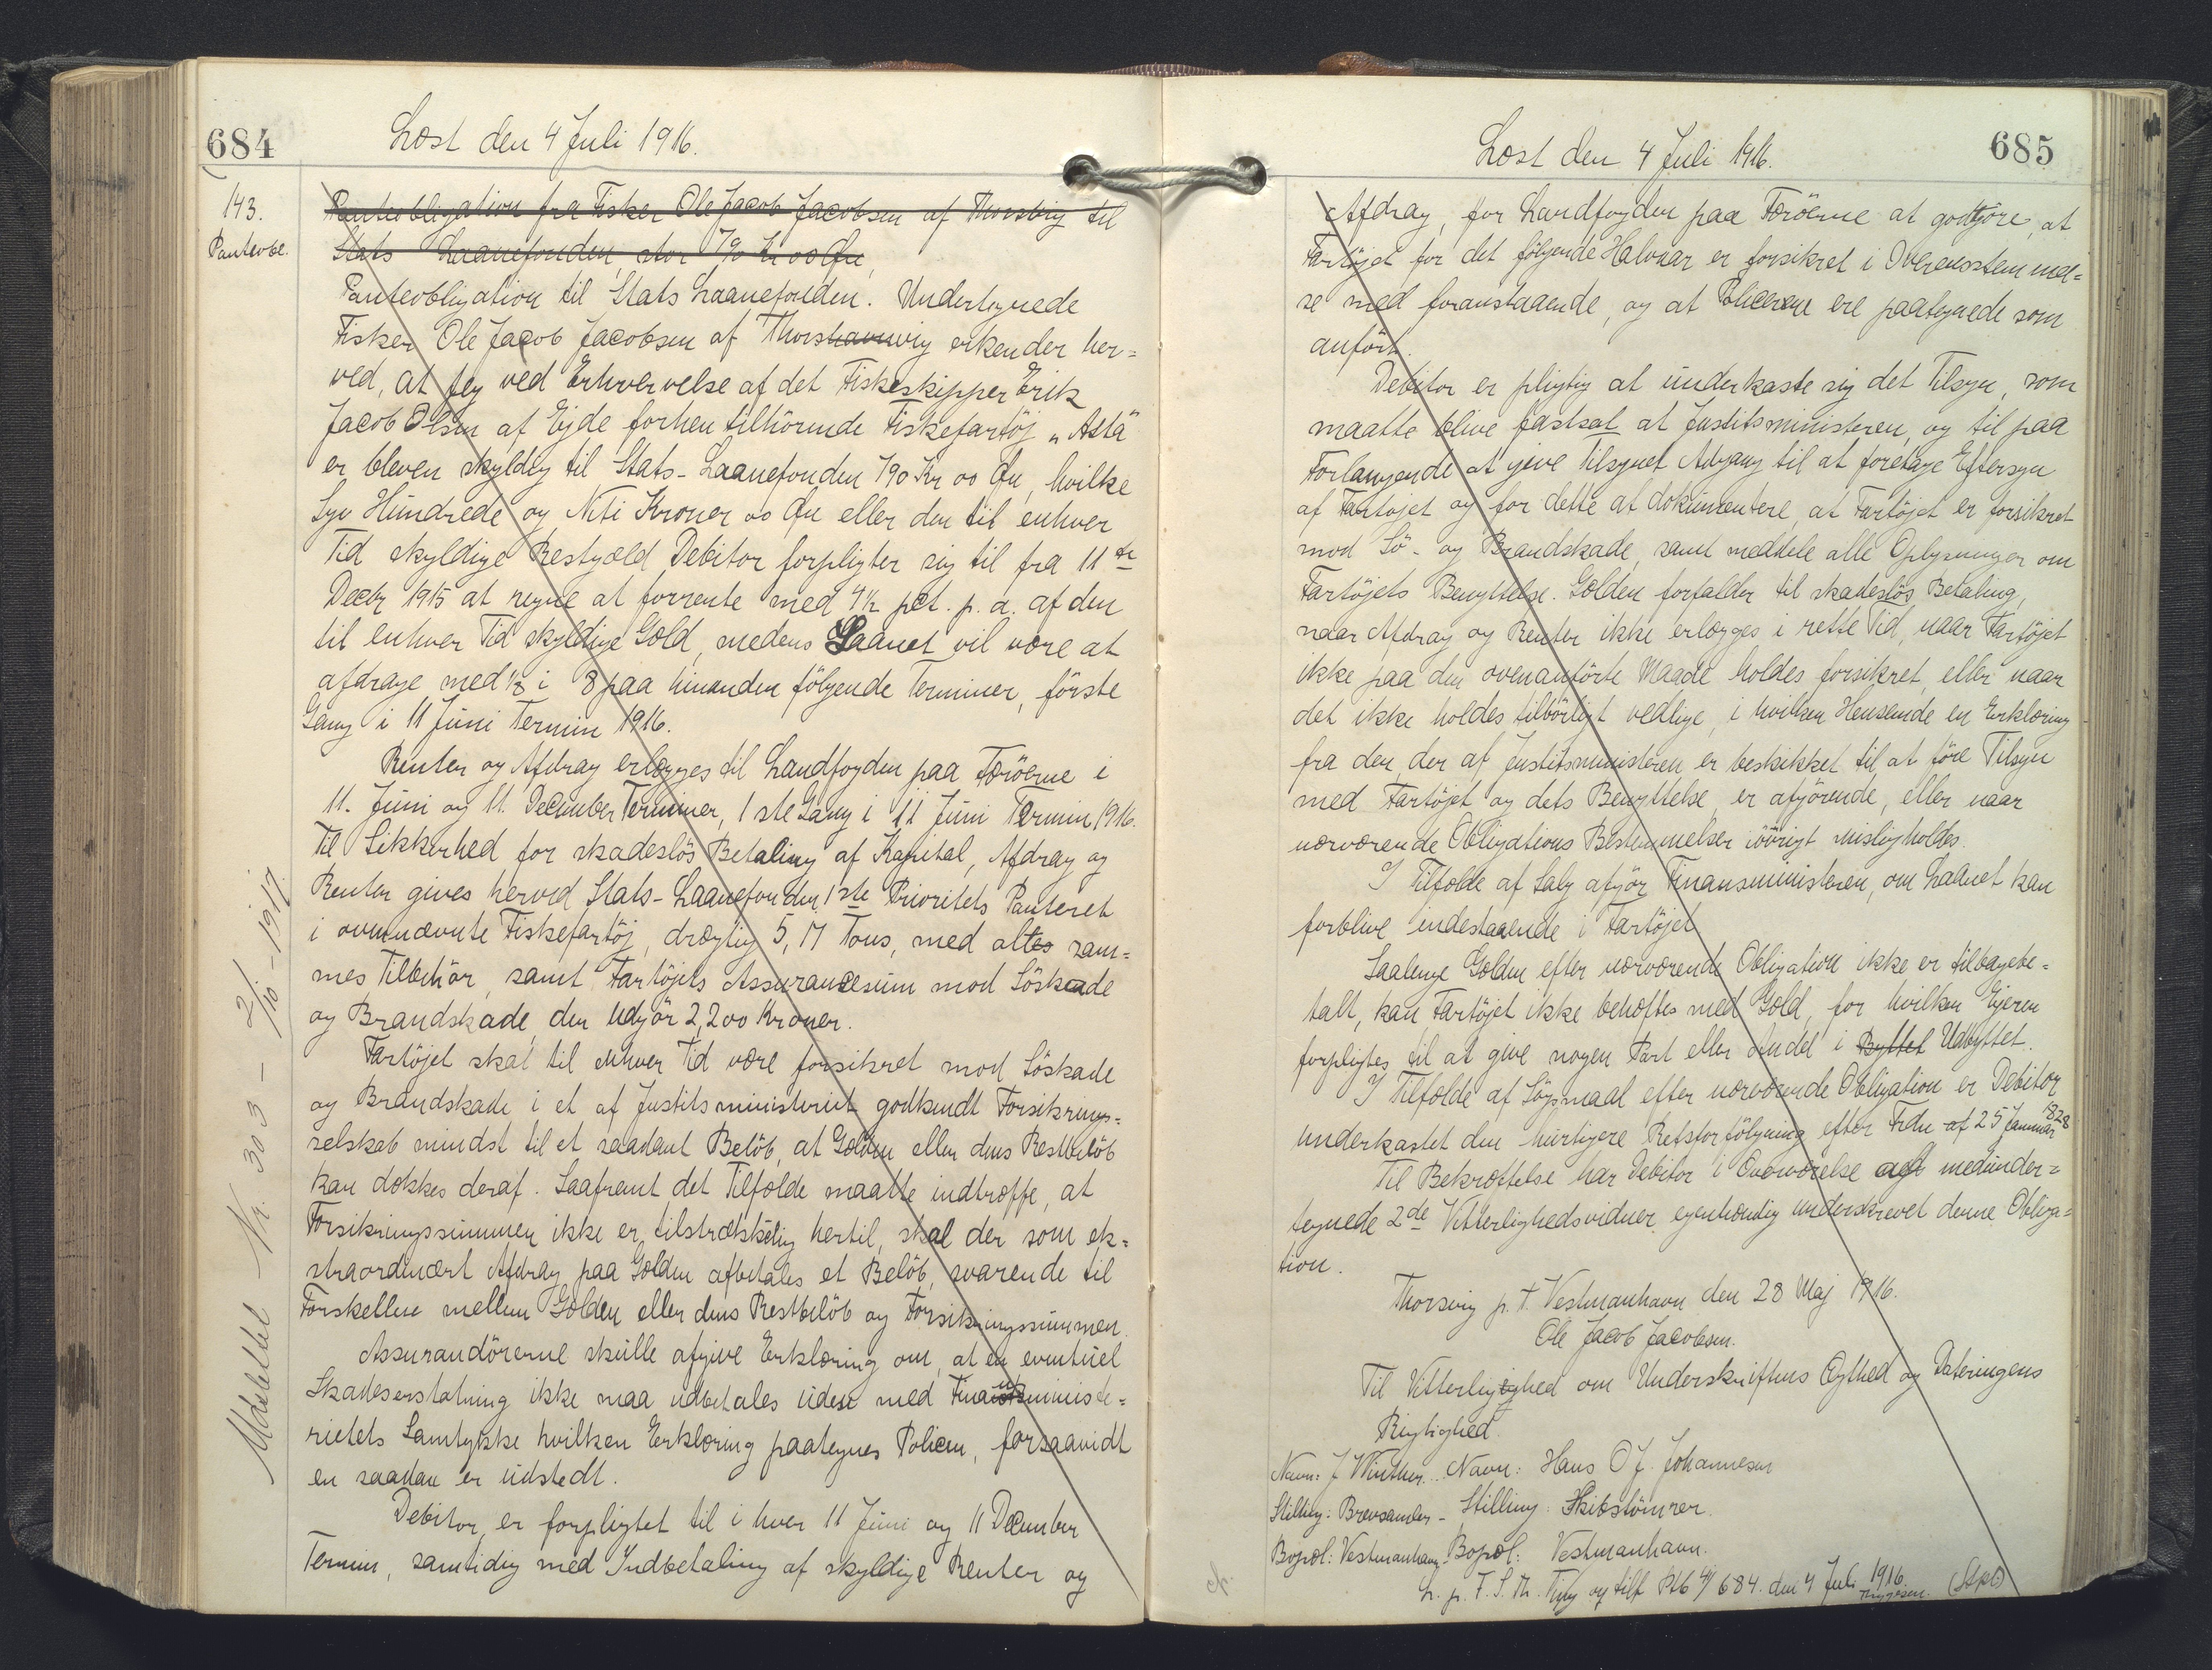 684
Læst den 4 Juli 1916.
143.
Panteobl.
Panteobligation fra Fisker Ole Jacob Jacobsen af Thorsvig til
Stats Laanefonden, stor 790 Kr 00 Øre,
Panteobligation til Stats Laanefonden. Undertegnede
Fisker Ole Jacob Jacobsen af Thorshavnvig erkender her=
ved, at jeg ved Erhvervelse af det Fiskeskipper Erik
Jacob Olsen af Ejde forhen tilhörende Fiskefartöj „Asta"
er bleven skyldig til Stats-Laanefonden 790 Kr 00 Øre, hvilke
Syv Hundrede og Niti Kroner 00 Øre eller den til enhver
Tid skyldige Restgæld Debitor forpligter sig til fra 11te
Decbr 1915 at regne at forrente med 4½ pct. p. a. af den
til enhver Tid skyldige Gæld, medens Laanet vil være at
afdrage med ⅛ i 8 paa hinanden fölgende Terminer, förste
Gang i 11 Juni Termin 1916.
Renter og Afdrag erlægges til Landfogden paa Færöerne i
11. Juni og 11. December Terminer, 1ste Gang i 11 Juni Termin 1916.
Til Sikkerhed for skadeslös Betaling af Kapital, Afdrag og
Renter gives herved Stats-Laanefonden 1ste Prioritets Panteret
i ovennævnte Fiskefartöj, drægtig 5,17 Tons, med altes sam=
mes Tilbehör, samt Fartöjets Assurancesum mod Söskade
og Brandskade, der udgör 2,200 Kroner.
Fartöjet skal til enhver Tid være forsikret mod Söskade
og Brandskade i et af Justitsministeriet godkendt Forsikrings=
selskab mindst til et saadant Belöb, at Gælden eller dens Restbelöb
kan dækkes deraf. Saafremt det Tilfælde maatte indtræffe, at
Forsikringssummen ikke er tilstrækkelig hertil, skal der som ek=
straordinært Afdrag paa Gælden afbetales et Belöb, svarende til
Forskellen mellem Gælden eller dens Restbelöb og Forsikringssummen.
Assurandörerne skulle afgive Erklæring om, at en eventuel
Skadeserstatning ikke maa udbetales uden med Finansministe=
rietets Samtykke hvilken Erklæring paategnes Policen, forsaavidt
en saadan er udstedt.
Debitor er forpligtet til i hver 11 Juni og 11 December
Termin, samtidig med Indbetaling af skyldige Renter og
Udslettet Nr. 303 – 2/10 - 1917.
685
Læst den 4 Juli 1916.
Afdrag, for Landfogden paa Færöerne at godtgöre, at
Fartöjet for det fölgende Halvaar er forsikret i Overensstemmel=
se med foranstaaende, og at Policerne ere paategnede som
anfört.
Debitor er pligtig at underkaste sig det Tilsyn, som
maatte blive fastsat at Justitsministeren, og til paa
Forlangende at give Tilsynet Adgang til at foretage Eftersyn
af Fartöjet og for dette at dokumentere, at Fartöjet er forsikret
mod Sö- og Brandskade, samt meddele alle Oplysninger om
Fartöjets Benyttelse. Gælden forfalder til skadeslös Betaling,
naar Afdrag og Renter ikke erlægges i rette Tid, naar Fartöjet
ikke paa den ovenanförte Maade holdes forsikret, eller naar
det ikke holdes tilbörligt vedlige, i hvilken Henseende en Erklæring
fra den, der af Justitsministeren er beskikket til at före Tilsyn
med Fartöjet og dets Benyttelse er afgörende, eller naar
nærværende Obligations Bestemmelser iövrigt misligholdes.
I Tilfælde af Salg afgör Finansministeren, om Laanet kan
forblive indestaaende i Fartöjet.
Saalenge Gælden efter nærværende Obligation ikke er tilbagebe=
talt, kan Fartöjet ikke behæftes med Gæld, for hvilken Ejeren
forpligtes til at give nogen Part eller Andel i Byttet Udbyttet.
I Tilfælde af Sögsmaal efter nærværende Obligation er Debitor
underkastet den hurtigere Retsforfölgning efter Frdn af 25 Januar 1828
Til Bekræftelse har Debitor i Overværelse af medunder=
tegnede 2de Vitterlighedsvidner egenhændig underskrevet denne Obliga=
tion.
Thorsvig p. t. Vestmanhavn den 28 Maj 1916.
Ole Jacob Jacobsen.
Til Vitterlighed om Underskriftens Ægthed og Dateringens
Rigtighed.
Navn: J Winther. Navn: Hans O J. Johannesen
Stilling: Brevsamler - Stilling: Skibstömrer.
Bopæl: Vestmanhavn. Bopæl: Vestmanhavn.
L. p. F. S. Th. Ting og tilf Ptb 4/684. den 4 Juli 1916.